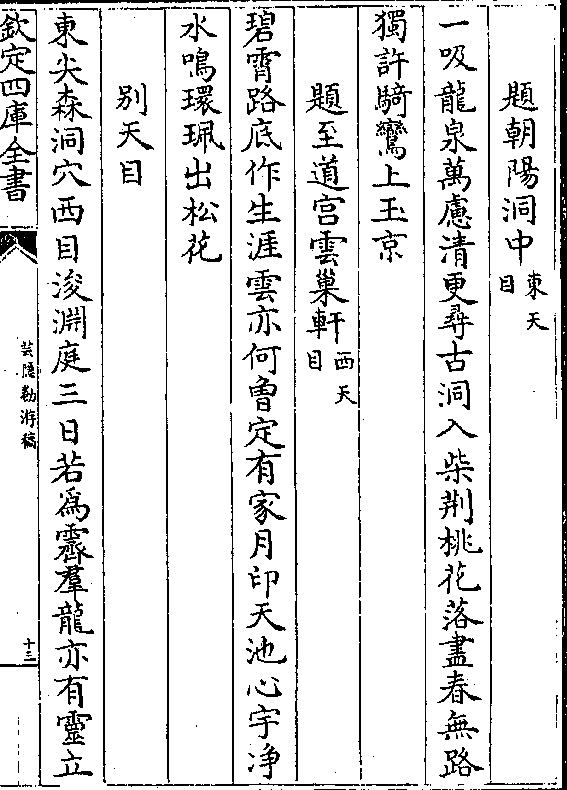 題朝陽洞中東天目
一吸龍泉萬慮清更尋古洞入柴荆桃花落盡春無路
獨許騎鸞上玉京
題至道宫雲巢軒西天目
碧霄路底作生涯雲亦何曾定有家月印天池心宇浄
水鳴環珮出松花
别天目
東尖森洞穴西目浚淵庭三日若為霽羣龍亦有靈立
欽定四庫全書
芸隱勌游稿
十三